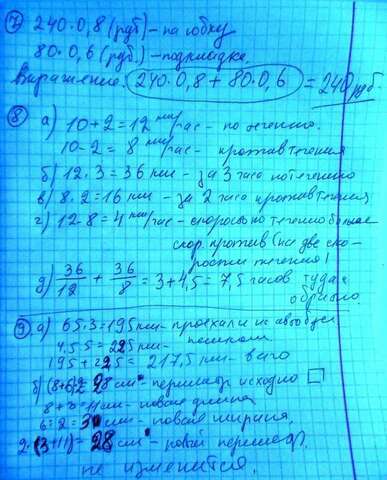 7 240·0,8 (руб) – на юбку
80·0,6 (руб.) – подкладка.
Выражение: 240·0,8 + 80·0,6 = 240 руб.
8 а) 10+2=12 км/час – по течению.
10-2= 8 км/час – против течения
б) 12·3=36 км – за 3 часа по течению
в) 8·2=16 км – за 2 часа против течения
г) 12-8=4 км/час – скорость по течению больше
скор. против (на две ско-
рости течения)
д) 36/12 + 36/8 = 3+4,5 = 7,5 часов туда и
обратно.
9 а) 65·3=195 км – проехали на автобусе
4,5·5 = 225 км – пешком
195+225 = 217,5 км – всего
б) (8+6)·2 28 см – периметр исходно □
8+3=11 см – новая длина
6:2 = 3 см – новая ширина,
2·(3+11)=28 см – новый периметр.
не изменится.